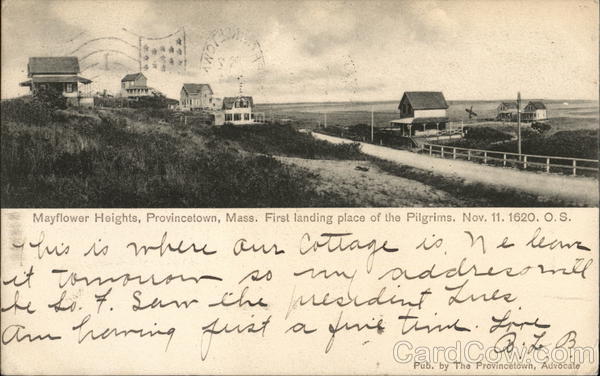 Mayflower Heights, Provincetown, Mass. First landing place of the Pilgrims. Nov. 11. 1620. O. S.
This is where our Cottage is. We leave
it tomorrow so my address will
be So. F. Saw the president Tues.
Am having just a fine time. Love
B. L. B.
CardCow.com
Pub. by The Provincetown, Advocate